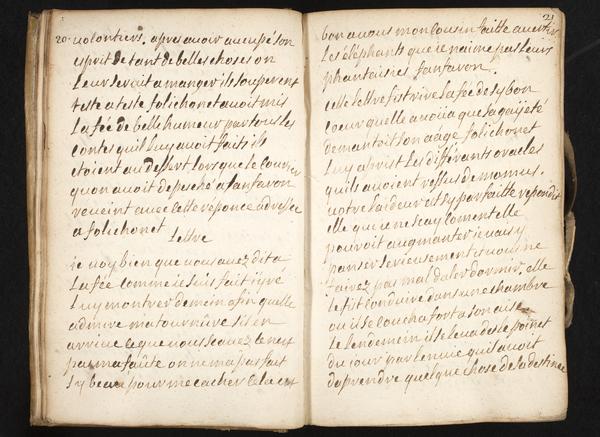 20. volontiers. apres avoir occupé son
esprit de tant de belles choses on
leur servit a manger ils souperent
teste a teste folichonet avoit mis
La fée de belle humeur par tous les
contes quil luy avoit faits ils
etoient au dessert lorsque le courier
quon avoit depeché a fanfaron
revint avec cette reponce adressée
a folichonet
Lettre
je voy bien que vous avez dit a
La fée comme je suis fait jyré
luy montrer demein afin quelle
admire ma tournure sil en
arrive ce que vous sçavez ce nest
pas ma faute on ne ma pas fait
sy beau pour me cacher cela est
21
bon a vous mon cousin faitte avertir
Les éléphants que je naime pas leurs
phantaisies fanfaron.
cette lettre fist rire la fée de sy bon
coeur quelle avoüa que sa gaÿeté
demantoit son aage folichonet
luy aprist les differants oracles
quils avoient ressus de momus.
votre laideur est sy parfaitte repondit
elle que je ne sçay coment elle
pouroit augmanter je vais y
panser serieusement et vous ne
ferez pas mal daler dormir, elle
le fit conduire dans une chambre
ou il se coucha fort a son aise
le lendemein il se leva des le point
du jour par lenvie quil avoit
daprendre quelque chose de sa destinee